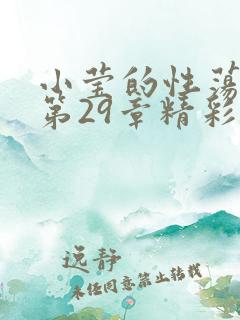 小莹的性荡
第29章精彩
逸静
未经同意禁止转载